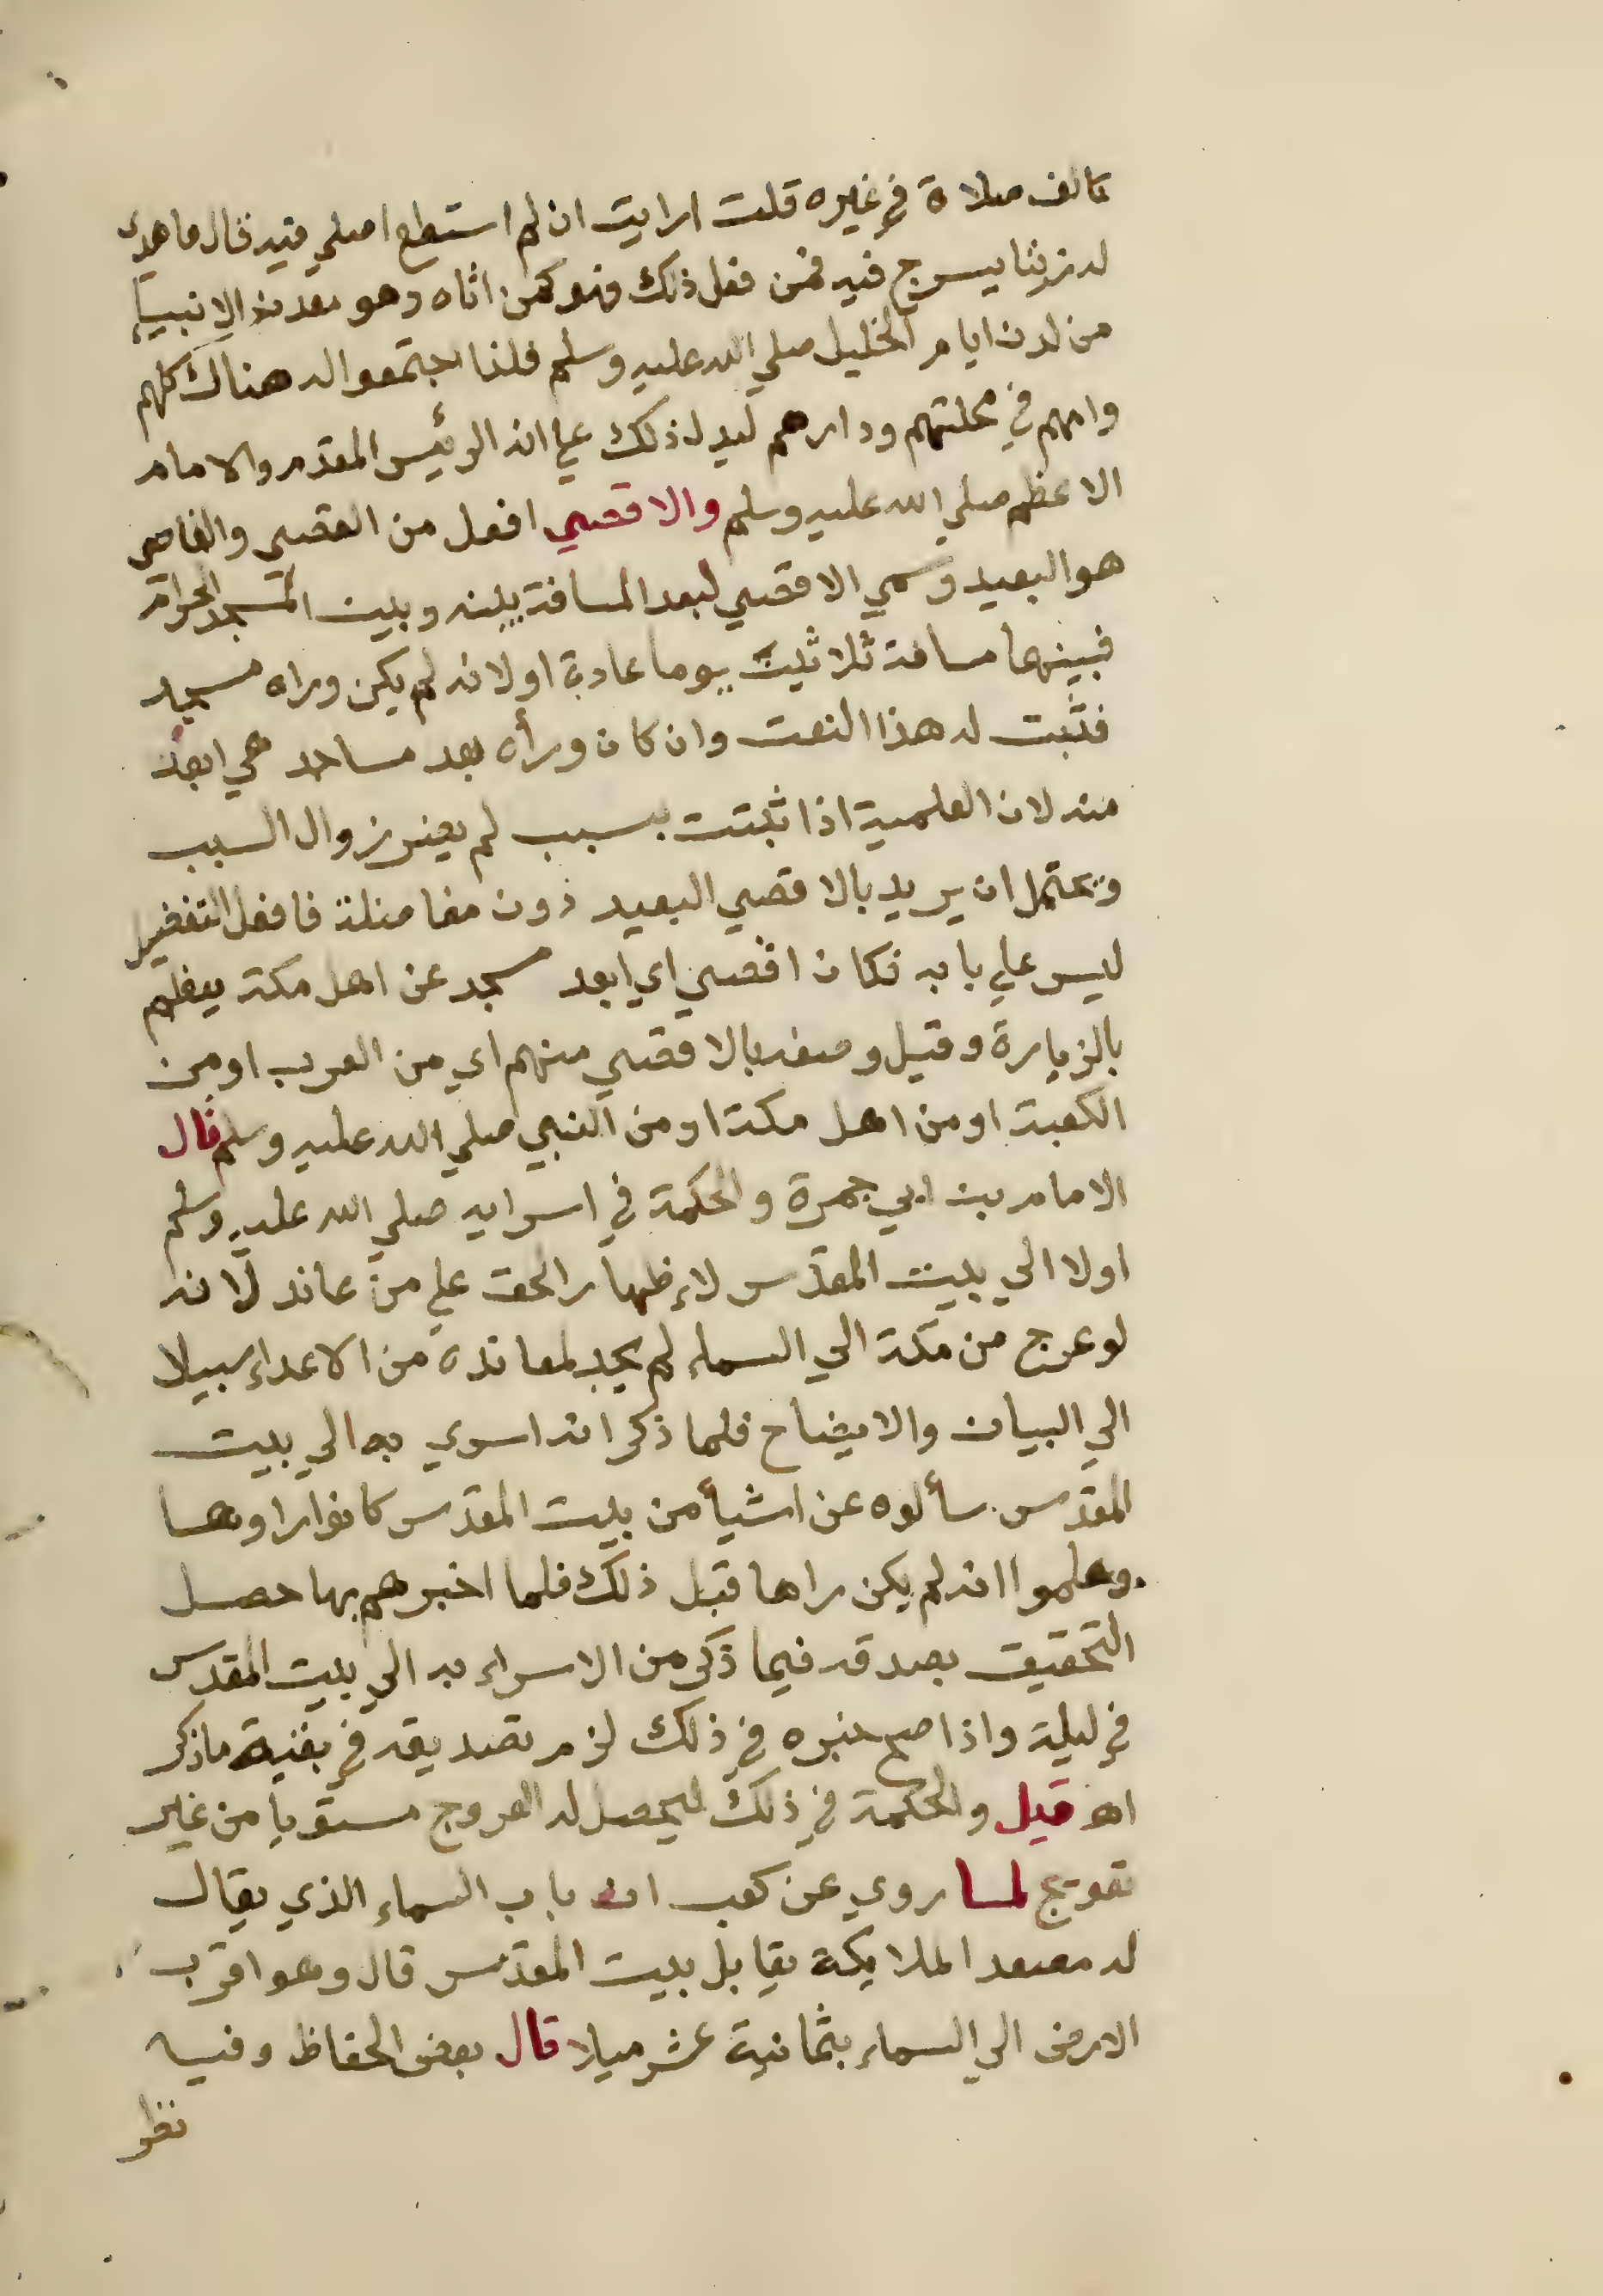 كالف صلاة في غيره قلت ارايت ان لم استطع اصلي فيه قال فاهدى
له زيتا يسرج فيه فمن فعل ذلك فهو كمن اتاه وهو معدن الانبياء
من لدن ايام الخليل صلي الله عليه وسلم فلذا اجتمعوا له هناك كلهم
وامهم في محلتهم ودارهم ليدل ذلك علي انه الرئيس المقدم والامام
الاعظم صلي الله عليه وسلم والاقصي افعل من القصي والقاصي
هو البعيد وسمي الاقصي لبعد المسافة بينه وبين المسجد الحرام
فبينهما مسافة ثلاثين يوما عادة او لانه لم يكن وراه مسجد
فثبت له هذا النعت وان كان ورأه بعد مساجد هي ابعد
منه لان العلمية اذا ثبتت بسبب لم يعتبر زوال السبب
ويحتمل ان يريد بالاقصي البعيد دون مفاضلة فافعل التفضيل
ليس علي بابه فكان اقصي اي ابعد مسجد عن اهل مكة يعظم
بالزيارة وقيل وصفه بالاقصي منهم اي من العرب او من
الكعبة او من اهل مكة او من النبي صلي الله عليه وسلم قال
الامام بن ابي جمرة والحكمة في اسرايه صلي الله عليه وسلم
اولا الي بيت المقدس لاظهار الحق علي من عاند لانه
لو عرج من مكة الي السماء لم يجد لمعاندة من الاعداء سبيلا
الي البيان والايضاح فلما ذكر انه اسري به الي بيت
المقدس سألوه عن اشيأ من بيت المقدس كانوا راوها
وعلموا انه لم يكن راها قبل ذلك فلما اخبرهم بها حصل
التحقيق بصدقه فيما ذكر من الاسراء به الي بيت المقدس
في ليلة واذا صح خبره في ذلك لزم تصديقه في بقية ما ذكر
اه قيل والحكمة في ذلك ليحصل له العروج مستويا من غير
تعويج لما روي عن كعب ان باب السماء الذي يقال
له مصعد الملايكة يقابل بيت المقدس قال وهو اقرب
الارض الي السماء بثمانية عشر ميلا قال بعض الحفاظ وفيه
نظر